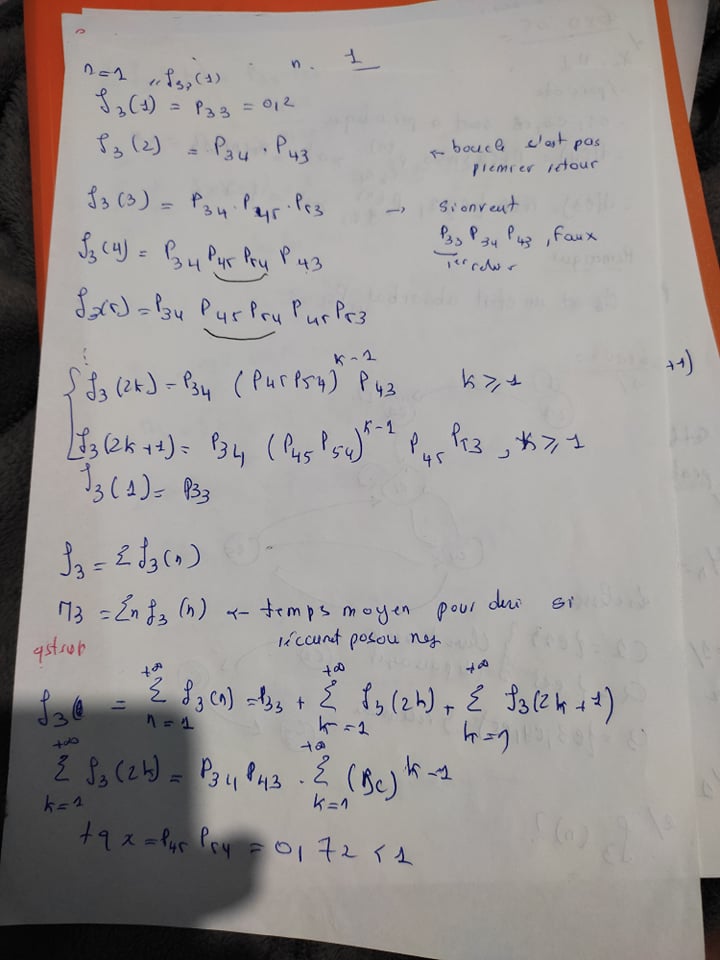 n=1 ,, f₃,(1) n. 1
f₃(1) = P₃₃ = 0,2
f₃(2) = P₃₄ · P₄₃ ← boucle c'est pas
premier retour
f₃(3) = P₃₄ · P₄₅ · P₅₃ → sionveut
P₃₃ P₃₄ P₄₃, Faux
1er retour
f₃(4) = P₃₄ P₄₅ P₅₄ P₄₃
f₃(5) = P₃₄ P₄₅ P₅₄ P₄₅ P₅₃
⋮
{ f₃(2k) = P₃₄ (P₄₅P₅₄)^(k-1) P₄₃ k ≥ 1
f₃(2k+1) = P₃₄ (P₄₅ P₅₄)^(k-1) P₄₅ P₅₃, k ≥ 1
f₃(1) = P₃₃
+1)
f₃ = Σ f₃(n)
M₃ = Σn f₃(n) ← temps moyen pour si
f₃ = Σ_(n=1)^(+∞) f₃(n) = P₃₃ + Σ_(k=1)^(+∞) f₃(2k) + Σ_(k=1)^(+∞) f₃(2k+1)
Σ_(k=1)^(+∞) f₃(2k) = P₃₄ P₄₃ · Σ_(k=1)^(+∞) ^(k-1)
tq x = P₄₅ P₅₄ = 0,72 < 1